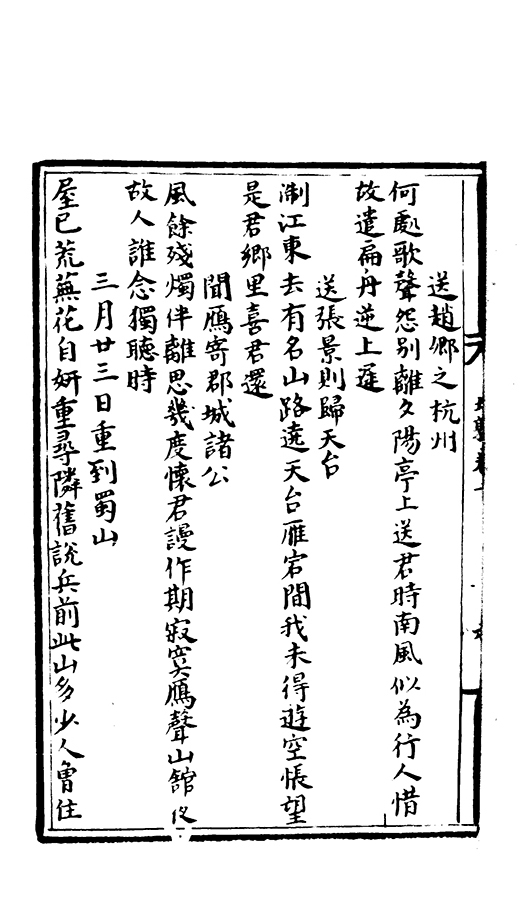 送趙鄉之杭州
何處歌聲怨别離夕陽亭上送君時南風似為行人惜
故遣扁舟逆上遲
送張景則歸天台
淛江東去有名山路遶天台雁宕間我未得遊空悵望
是君鄉里喜君還
聞鴈寄郡城諸公
風餘殘燭伴離思幾度懷君謾作期寂寞鴈聲山館夜
故人誰念獨聽時
三月廿三日重到蜀山
屋已荒蕪花自妍重尋隣舊說兵前此山多少人曾住